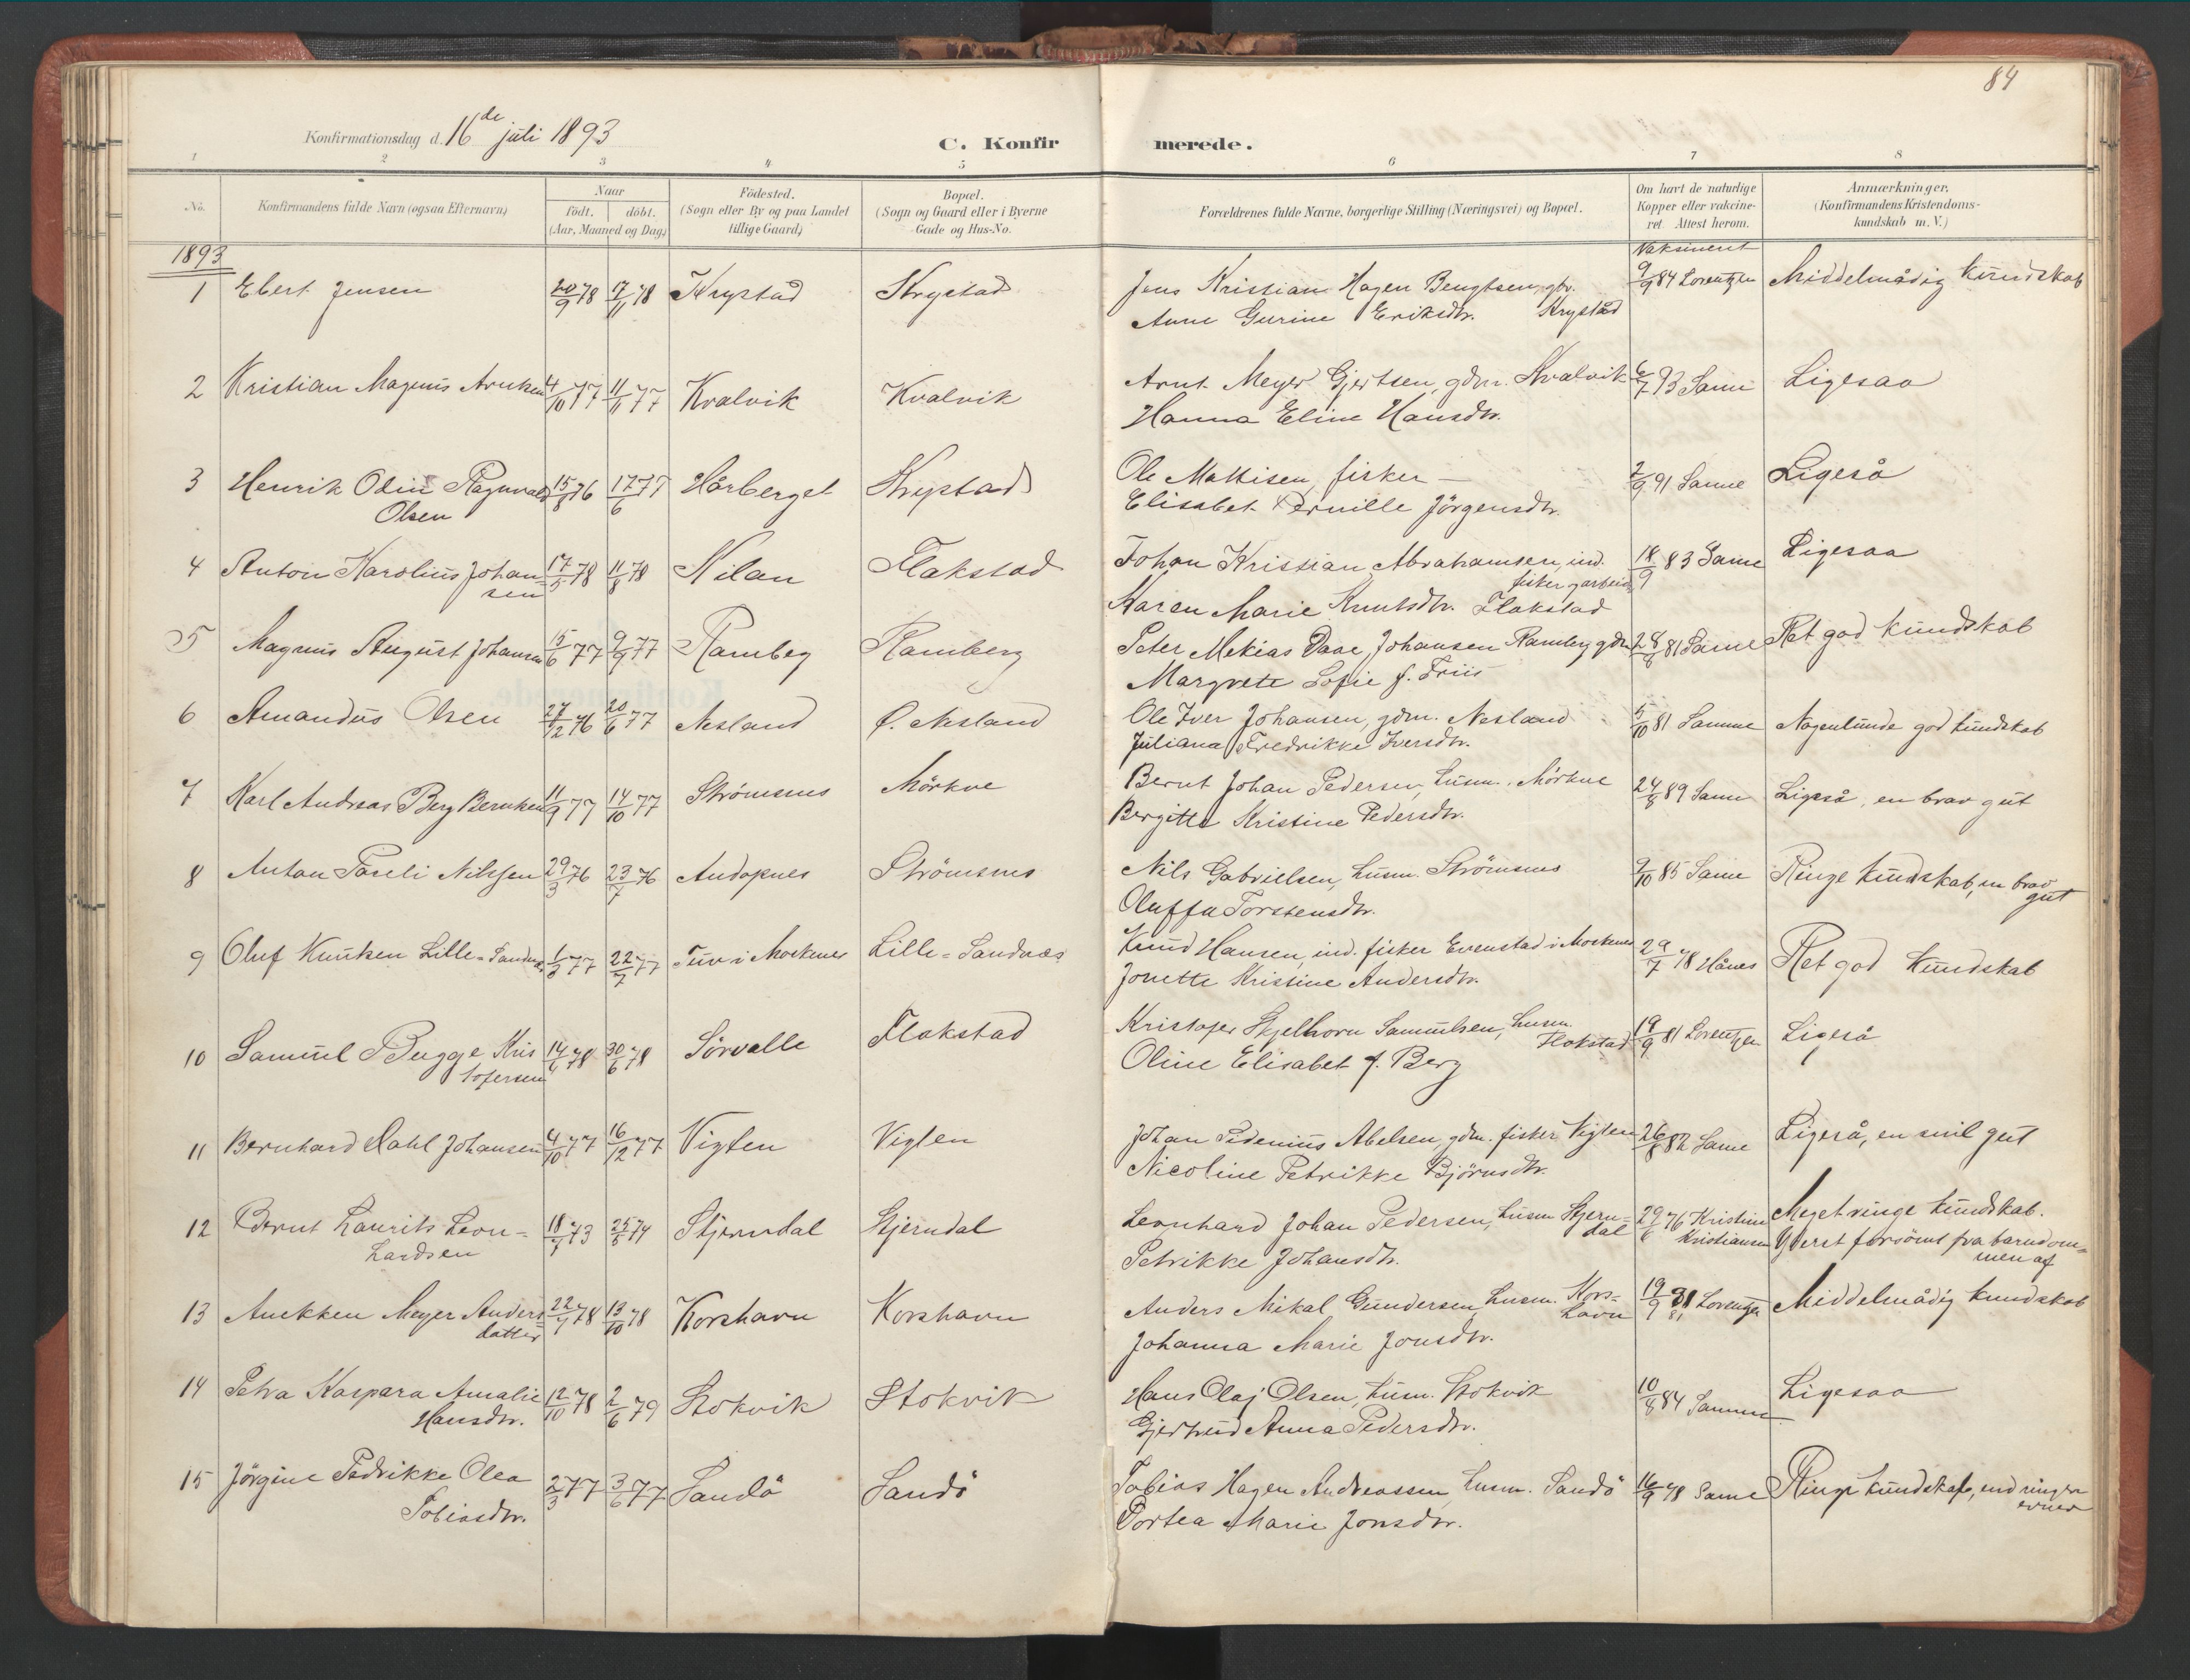 84
Konfirmationsdag d. 16de juli 1893
C. Konfirmerede.
1 2 3 4 5 6 7 8
No. Konfirmandens fulde Navn (ogsaa Efternavn) Naar födt. döbt. (Aar, Maaned og Dag) Födested. (Sogn eller By og paa Landet tillige Gaard) Bopæl. (Sogn og Gaard eller i Byerne Gade og Hus-No. Forældrenes fulde Navne, borgerlige Stilling (Næringsvei) og Bopæl. Om havt de naturlige Kopper eller vakcineret. Attest herom. Anmærkninger. (Konfirmandens Kristendomskundskab m. V.)
1893 Vaksineret
1 Ebert Jensen 20/9 78 17/11 78 Krystad Krystad Jens Kristian Hagen Bengtsen, gbr. 9/9 84 Lorentzen Middelmådig kundskab
Anne Gurine Eriksdtr. Krystad
2 Kristian Magnus Arntsen 4/10 77 11/11 77 Kvalvik Kvalvik Arnt Meyer Gjertsen, gdm. Kvalvik 6/7 93 Same Ligesaa
Hanna Eline Hansdtr.
3 Henrik Odin Ragnvald 15/8 76 17/6 77 Hårberget Krystad Ole Mathisen, fisker – 2/9 91 Samme Ligeså
Olsen Elisabet Pernille Jörgensdtr.
4 Anton Karolius Johan 17/5 78 11/8 78 Nilan Flakstad Johan Kristian Abrahamsen, ind. 18/9 83 Same Ligesaa
sen fisker, arbeid.
Karen Marie Knutsdtr. Flakstad
5 Magnus August Johansen 15/6 77 9/9 77 Ramberg Ramberg Peter Mekias Daae Johansen Ramberg gdm 28/8 81 Same Ret god kundskab
Margrete Sofie f. Friis
6 Amandus Olsen 27/12 76 20/6 77 Nesland Ø. Nesland Ole Iver Johansen, gdm. Nesland 5/10 81 Samme Nogenlunde god kundskab
Juliana Fredrikke Iversdtr.
7 Karl Andreas Berg Berntsen 11/9 77 14/10 77 Strömsnes Mörkve Bernt Johan Pedersen, husm. Mörkve 24/8 89 Same Ligeså, en brav gut
Bergitte Kristine Pedersdtr.
8 Anton Pareli Nilssen 29/3 76 23/7 76 Andopnes Strömsnes Nils Gabrielsen, husm. Strömsnes 9/10 85 Same Ringe kundskab, en brav
gut
Oluffa Torstensdtr.
9 Oluf Knutsen Lille-Sandnes 1/3 77 22/7 77 Tuv i Moskenes Lille-Sandnæs Knud Hansen, ind. fisker Evenstad i Moskenes 29/7 78 Hånes Ret god kundskab
Jonette Kristine Andersdtr.
10 Samuel Bugge Kris 14/4 78 30/6 78 Sörvalle Flakstad Kristofer Skjelhorn Samuelsen, husm. 19/9 81 Lorentzen Ligeså
tofersen Flakstad
Oline Elisabet f. Berg
11 Bernhard Dahl Johansen 4/10 77 16/12 77 Vigten Vigten Johan Pedenius Abelsen, gdm. fisker Vigten 26/8 82 Same Ligeså, en snil gut
Nicoline Petrikke Björnsdtr.
12 Bernt Laurits Leon- 18/7 73 25/5 74 Stjerndal Stjerndal Leonhard Johan Pedersen, husm Stjern- 29/6 76 Kristine Meget ringe kundskab.
hardsen dal Kristiansen Yderst forsömt fra barndom-
men af
Petrikke Johansdtr.
13 Anekken Meyer Anders 22/7 78 13/10 78 Korshavn Korshavn Anders Mikal Gundersen, husm. Kors- 19/9 81 Lorentzen Middelmådig kundskab
datter havn 81
Johanna Marie Jonsdtr.
14 Petra Kaspara Amalie 12/10 78 2/6 79 Stokvik Stokvik Hans Olaj Olsen, husm. Stokvik 10/8 84 Samme Ligesaa
Hansdtr. Gjertrud Anna Pedersdtr.
15 Jörgine Pedrikke Olea 2/3 77 3/6 77 Sandö Sandö Tobias Hagen Andreassen, husm. Sandö 16/9 78 Same Ringe kundskab, end ringere
evner
Tobiasdtr. Dortea Marie Jonsdtr.